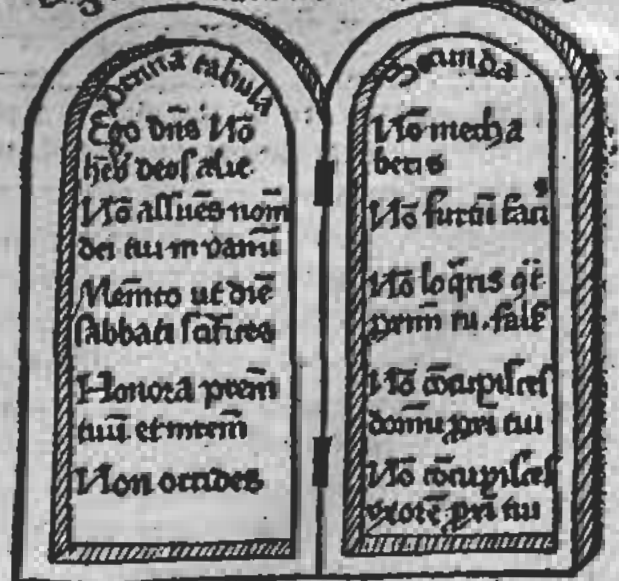 Prima tabula
Ego dn̄s Nō
hēb deos alie
Nō assūes nom̄
dei tui in vanū
Mem̄to ut diē
sabbati sc̄ifices
Honora prem̄
tuū et mrem̄
Non occides
Secunda
Nō mecha
beris
Nō furtū faci
s
Nō loq̄ris 
prim̄ tu. fals̄
Nō cōcupisces
domū pri tui
Nō cōcupisces
vxorē pri tui